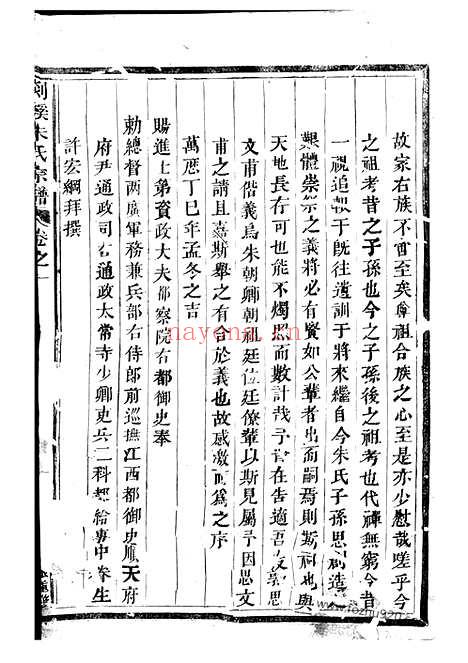 故家右族不啻至矣尊祖合族之心至是亦少慰哉嗟乎今
之祖考昔之子孫也今之子孫後之祖考也代禪無窮今昔
一視追報于既往遺訓于將來繼自今朱氏子孫思祠造
艱體崇祭之義將必有賢如公輩者出而嗣焉則斯祠也與
天地長存可也能不燭而數計哉予官在告適吾友郭思
文甫偕義烏朱朝卿朝祖廷位廷僚輩以斯見屬予因思文
甫之請且嘉斯舉之有合於義也故感激而為之序
萬曆丁巳年孟冬之吉
賜進士第資政大夫都察院右都御史奉
勅總督兩廣軍務兼兵部右侍郎前巡撫江西都御史順天府
府尹通政司右通政太常寺少卿吏兵二科都給事中眷生
許宏綱拜撰
剡溪朱氏宗譜 卷之一
nayona.cn
www.fozhu920.com